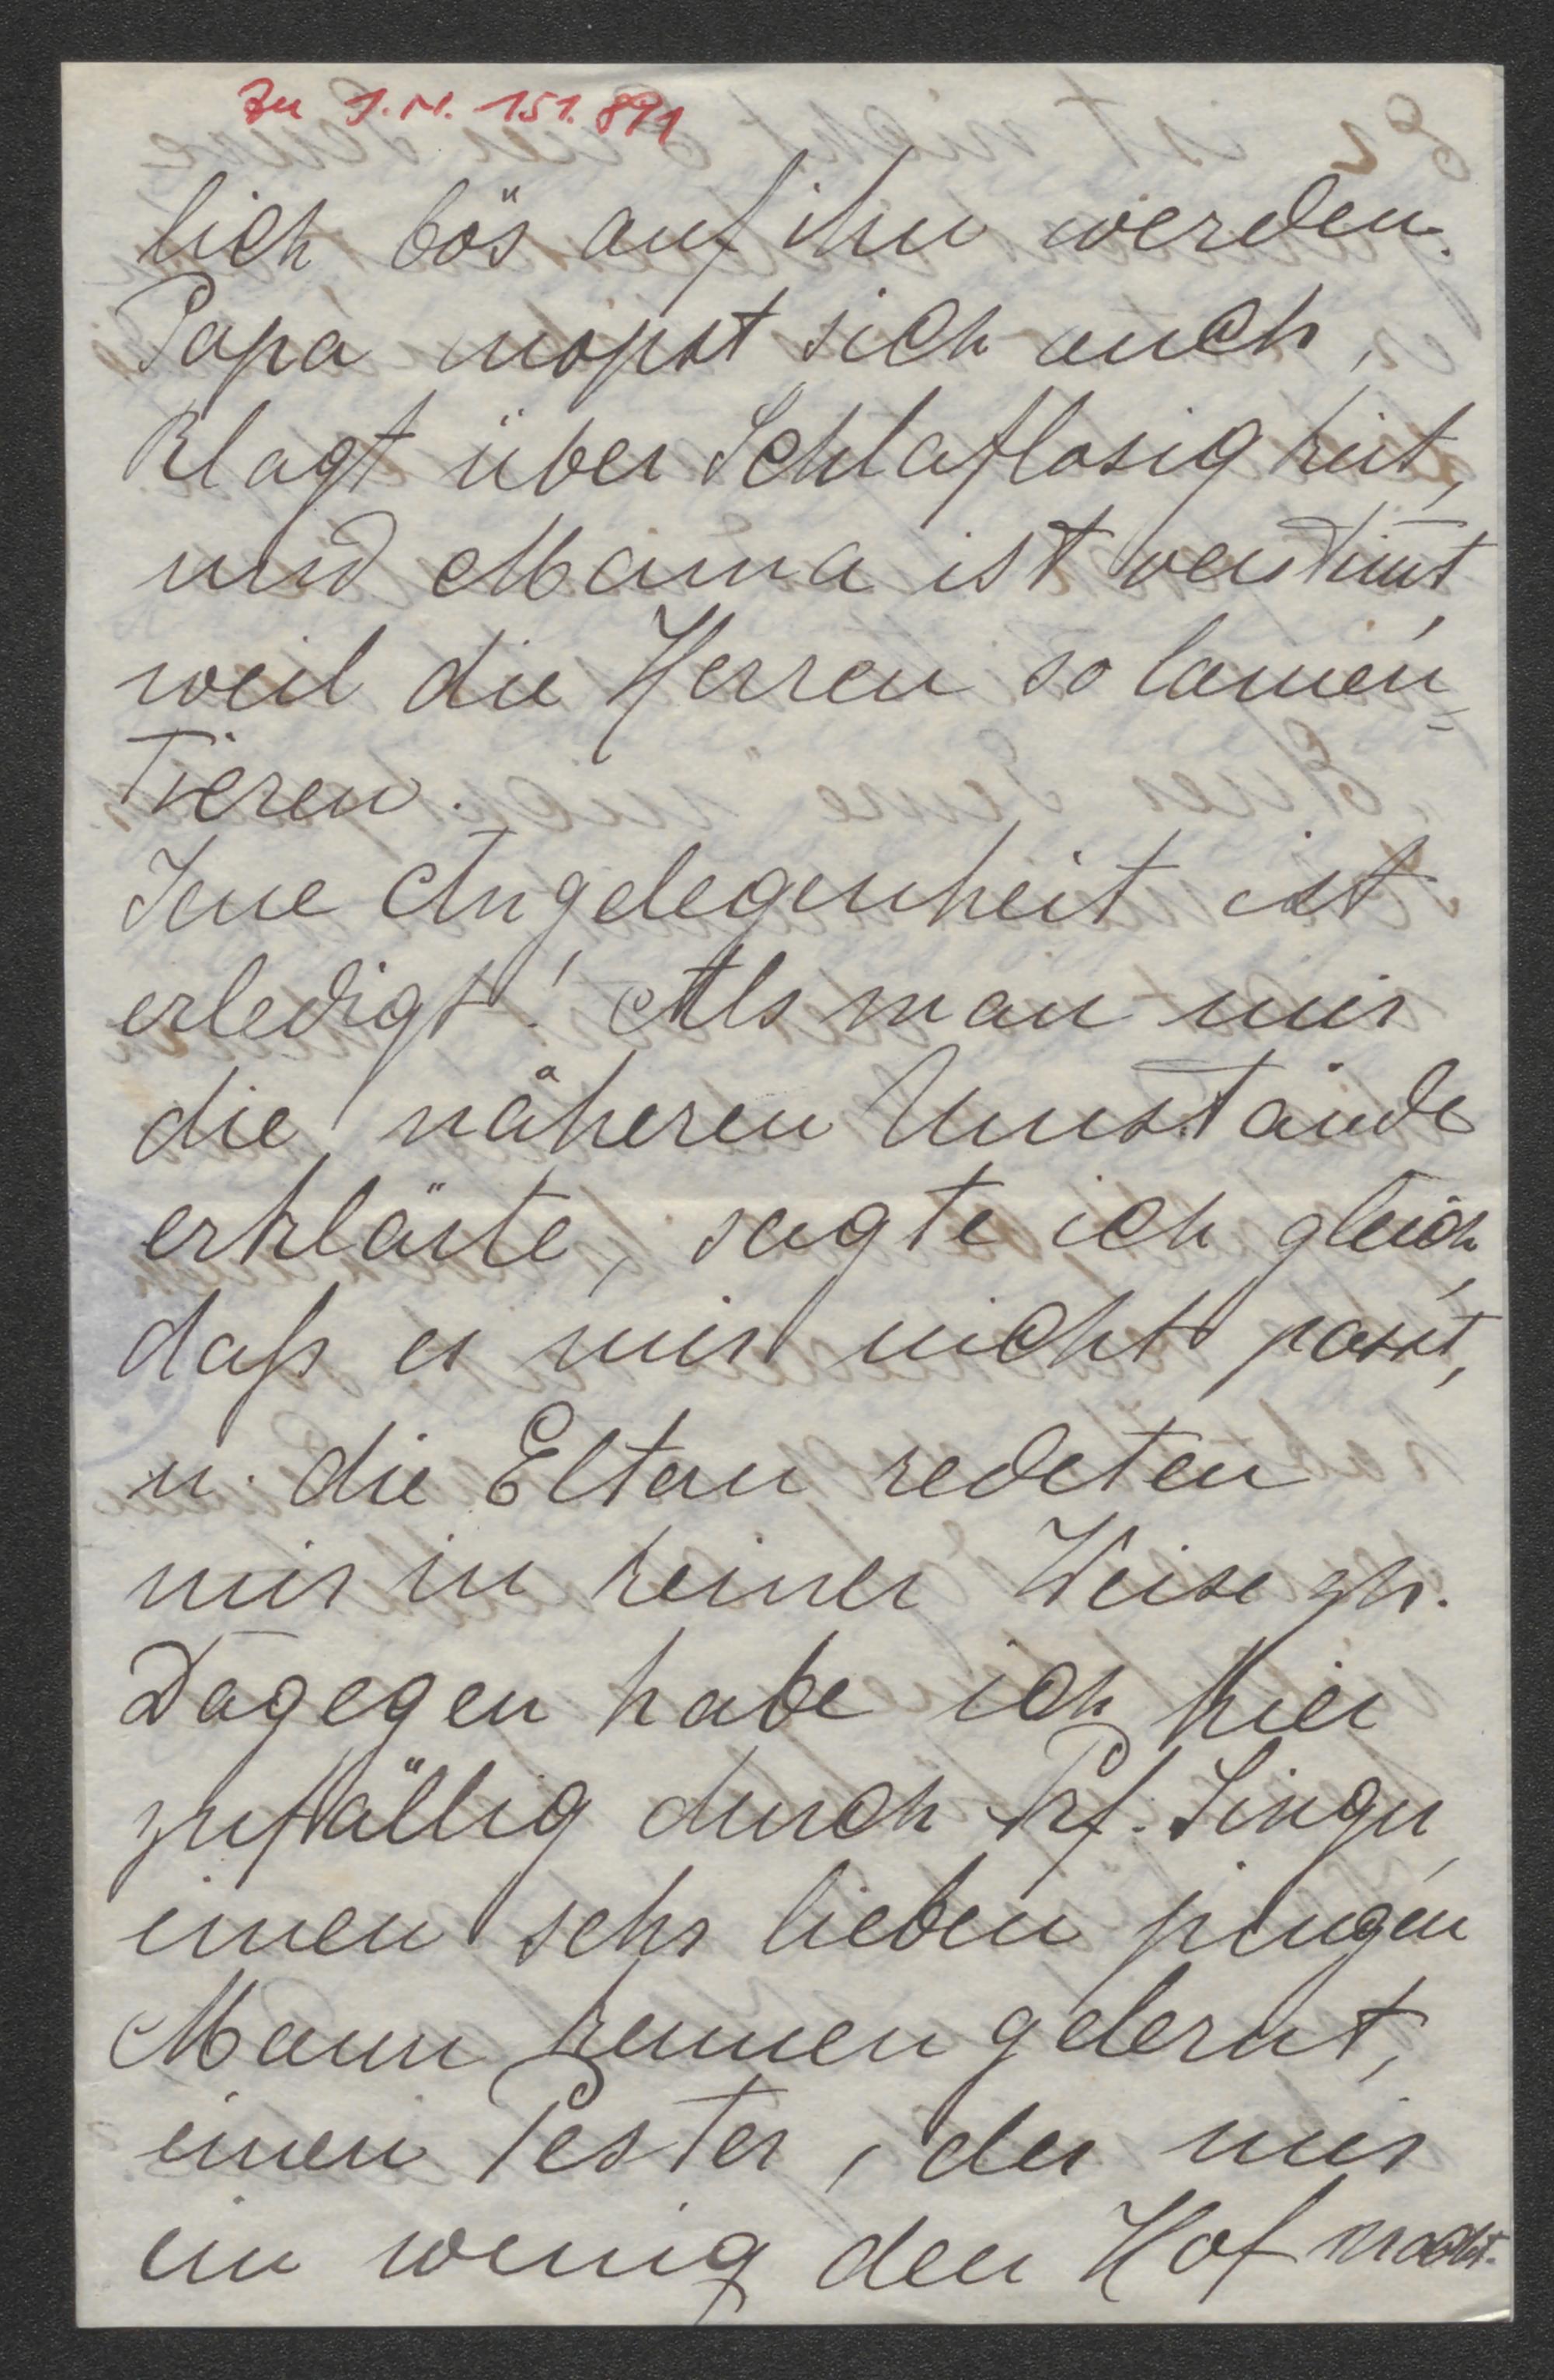 Zu I.N. 151.891
lich bös auf ihn werden.
Papa mopst sich auch,
klagt über Schlaflosigkeit,
und Mama ist verstimt,
weil die Herren so lamen-
tieren.
Jene Angelegenheit ist
erledigt! Als man mir
die näheren Umstände
erklärte, sagte ich gleich,
daß es mir nicht passt,
u. die Eltern redeten
mir in keiner Weise zu.
Dagegen habe ich hier
zufällig durch Prf. Singer
einen sehr lieben jungen
Mann kennen gelernt,
einen Pester, der mir
ein wenig den Hof macht.